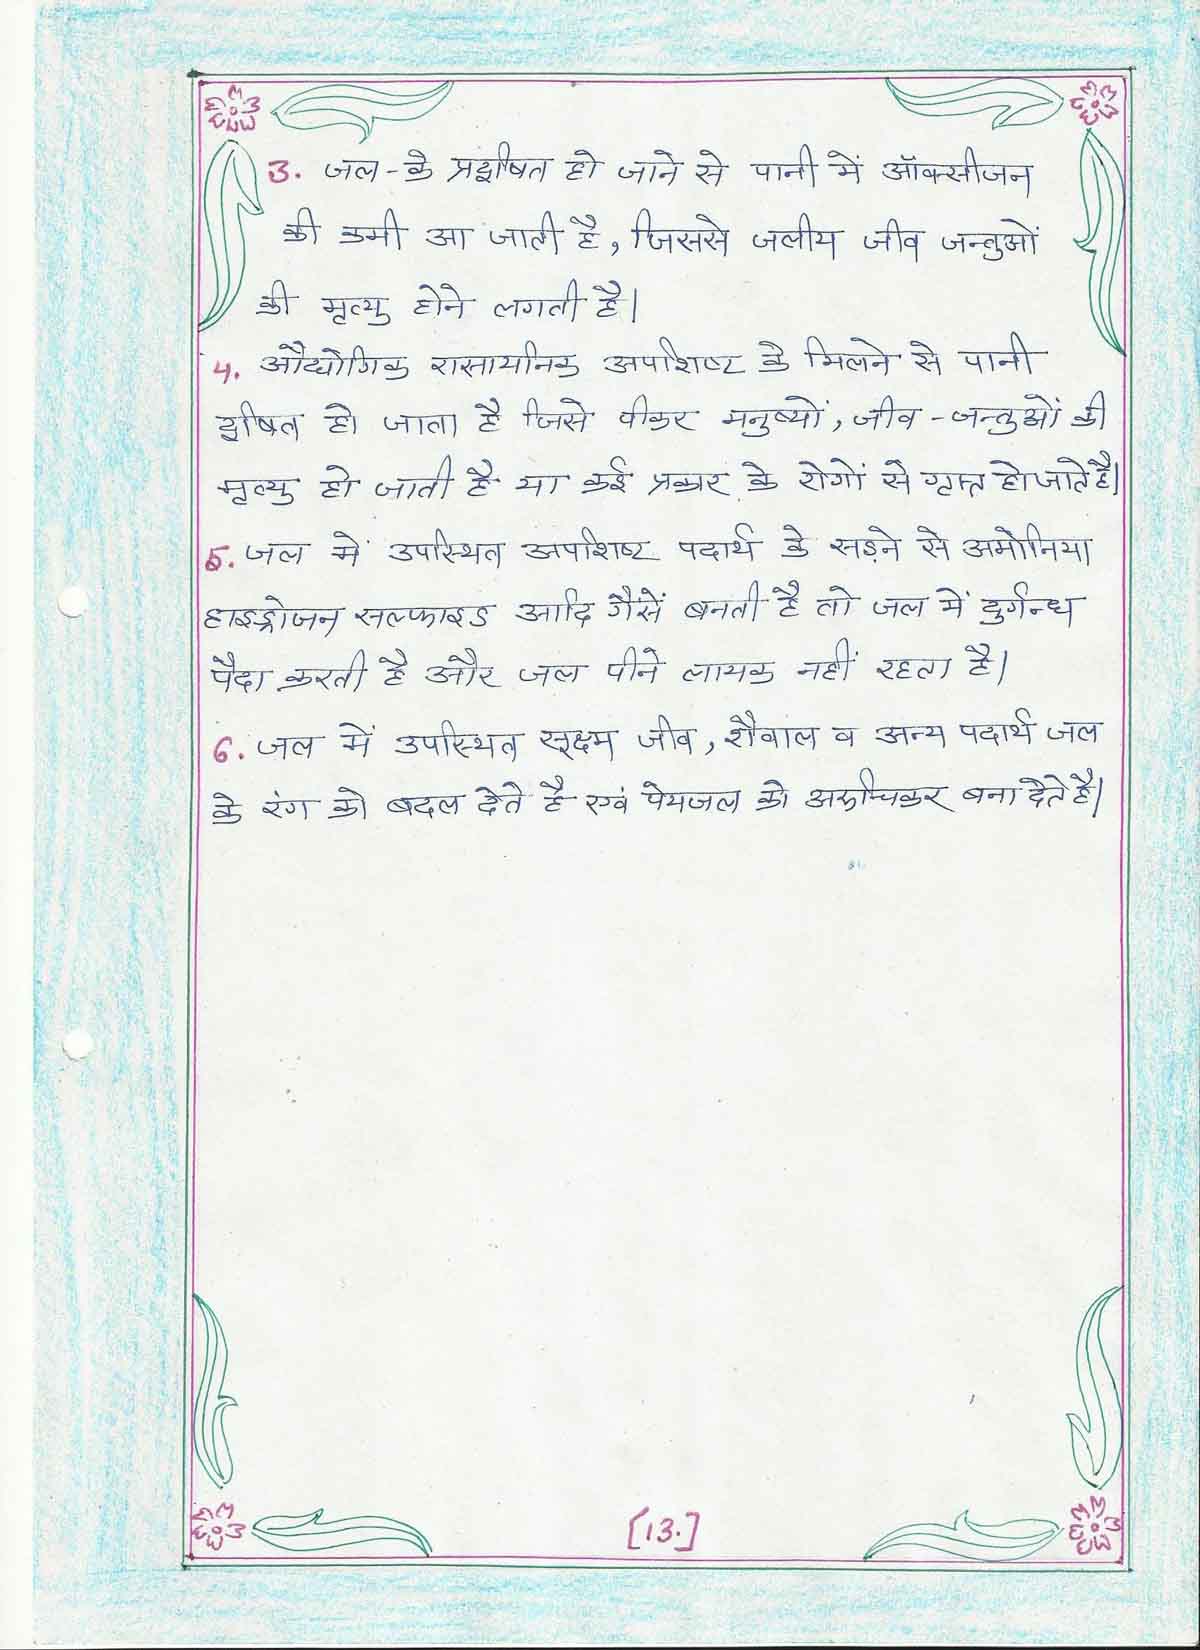 3. जल-के प्रदूषित हो जाने से पानी में ऑक्सीजन
की कमी आ जाती है, जिससे जलीय जीव जन्तुओं
की मृत्यु होने लगती है।
4. औद्योगिक रासायनिक अपशिष्ट के मिलने से पानी
दूषित हो जाता है जिसे पीकर मनुष्यों, जीव-जन्तुओं की
मृत्यु हो जाती है या कई प्रकार के रोगों से गृस्त हो जाते है।
5. जल में उपस्थित अपशिष्ट पदार्थ के सड़ने से अमोनिया
हाइड्रोजन सल्फाइड आदि गैसें बनती है तो जल में दुर्गन्ध
पैदा करती है और जल पीने लायक नहीं रहता है।
6. जल में उपस्थित सूक्ष्म जीव, शैवाल व अन्य पदार्थ जल
के रंग को बदल देते है एवं पेयजल को अरूचिकर बना देते है।
[13.]